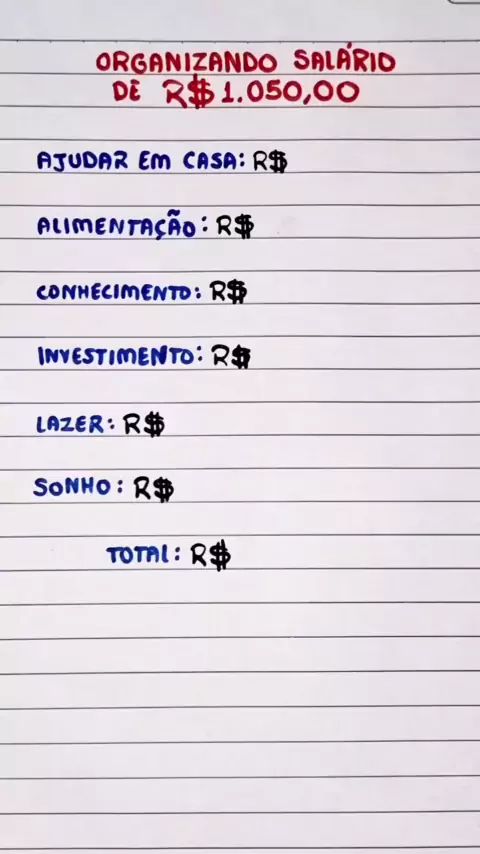 ORGANIZANDO SALÁRIO
DE R$ 1.050,00
AJUDAR EM CASA: R$
ALIMENTAÇÃO: R$
CONHECIMENTO: R$
INVESTIMENTO: R$
LAZER: R$
SONHO: R$
TOTAL: R$